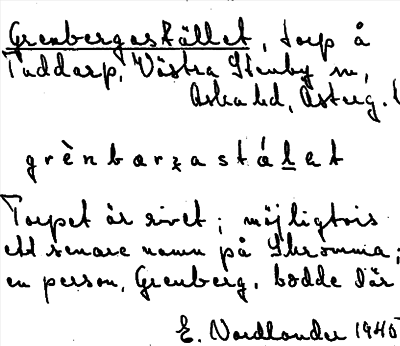 Grenbergastället, torp å
Tuddarp, Västra Stenby sn,
Aska hd, Österg. l
grènbarʒastáḷet
Torpet är rivet; möjligtvis
ett senare namn på Skrømma;
en person, Grenberg, bodde där
E. Nordlander 1945